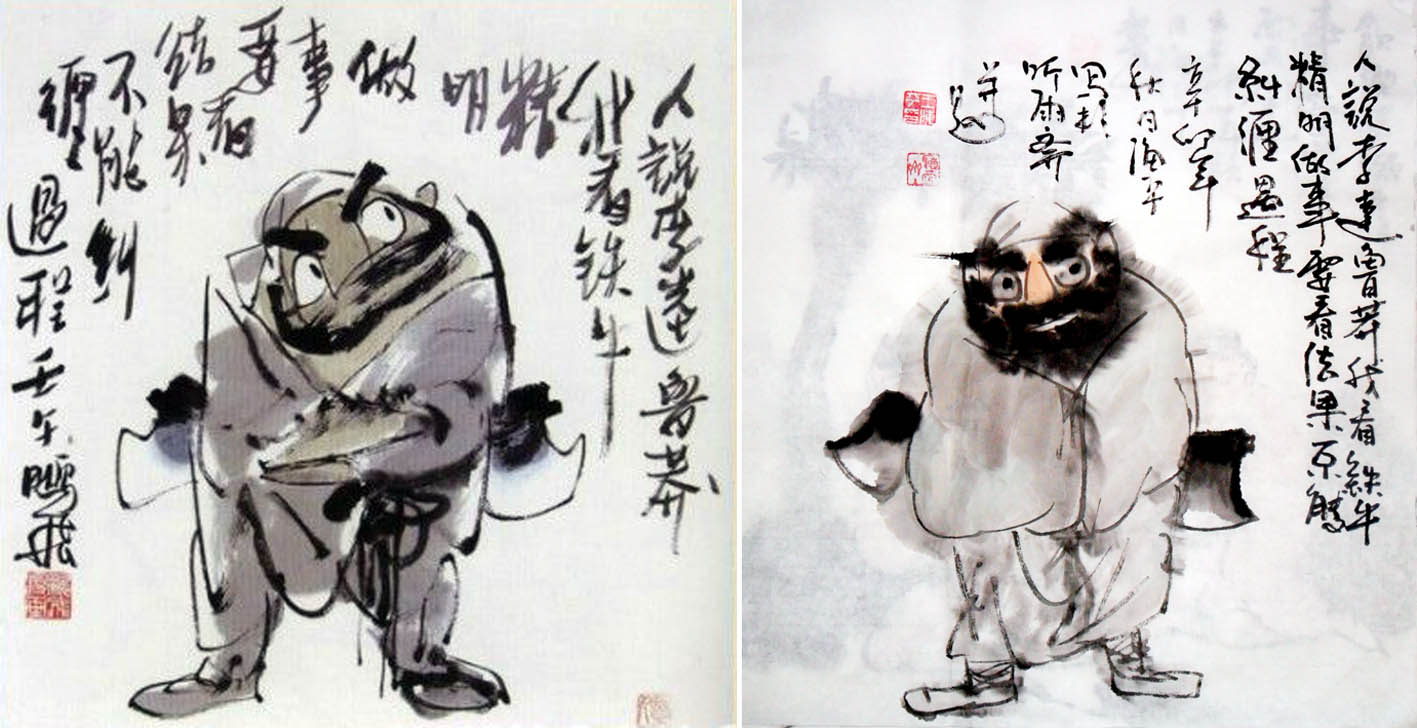 人說李逵魯莽
我看铁牛
精
明
做
事
要看
结果
不能糾
纏
過程壬午鵬飛
人說李逵魯莽我看鉄牛
精明做事要看结果不能
糾纏過程
辛卯年
秋月海平
写於
听雨斋